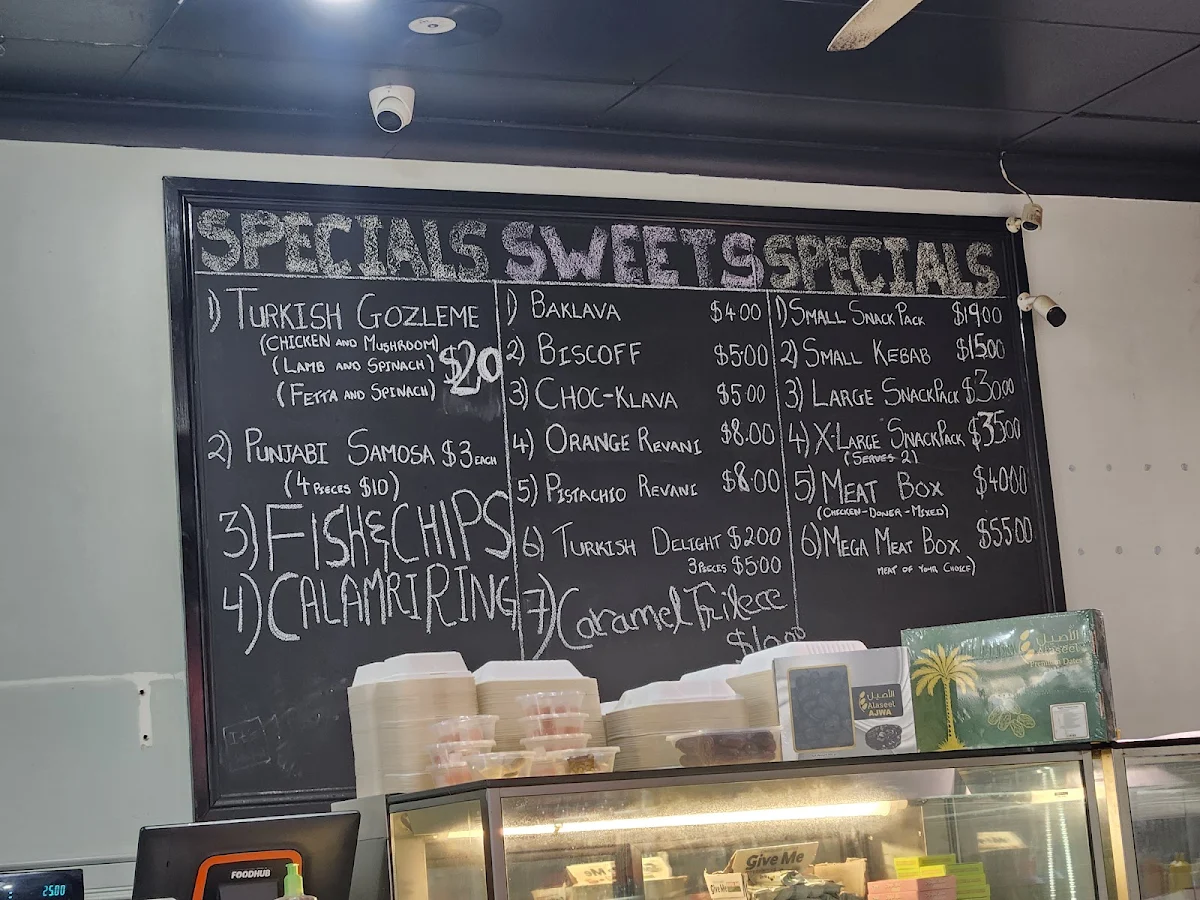 SPECIALS SWEETS SPECIALS
1) TURKISH GOZLEME
(CHICKEN AND MUSHROOM)
(LAMB AND SPINACH) $20
(FETTA AND SPINACH)
2) PUNJABI SAMOSA $3 EACH
(4 PIECES $10)
3) FISH & CHIPS
4) CALAMRI RING
1) BAKLAVA $4.00
2) BISCOFF $5.00
3) CHOC-KLAVA $5.00
4) ORANGE REVANI $8.00
5) PISTACHIO REVANI $8.00
6) TURKISH DELIGHT $2.00
3 PIECES $5.00
7) Caramel Trilece
$10.00
1) SMALL SNACK PACK $19.00
2) SMALL KEBAB $15.00
3) LARGE SNACKPACK $30.00
4) X-LARGE SNACKPACK $35.00
(SERVES 2)
5) MEAT BOX $40.00
(CHICKEN-DONER-MIXED)
6) MEGA MEAT BOX $55.00
MEAT OF YOUR CHOICE)
الأصيل
Alaseel
AJWA
الأصيل
Alaseel
Premium Dates
FOODHUB
25.00
Give Me